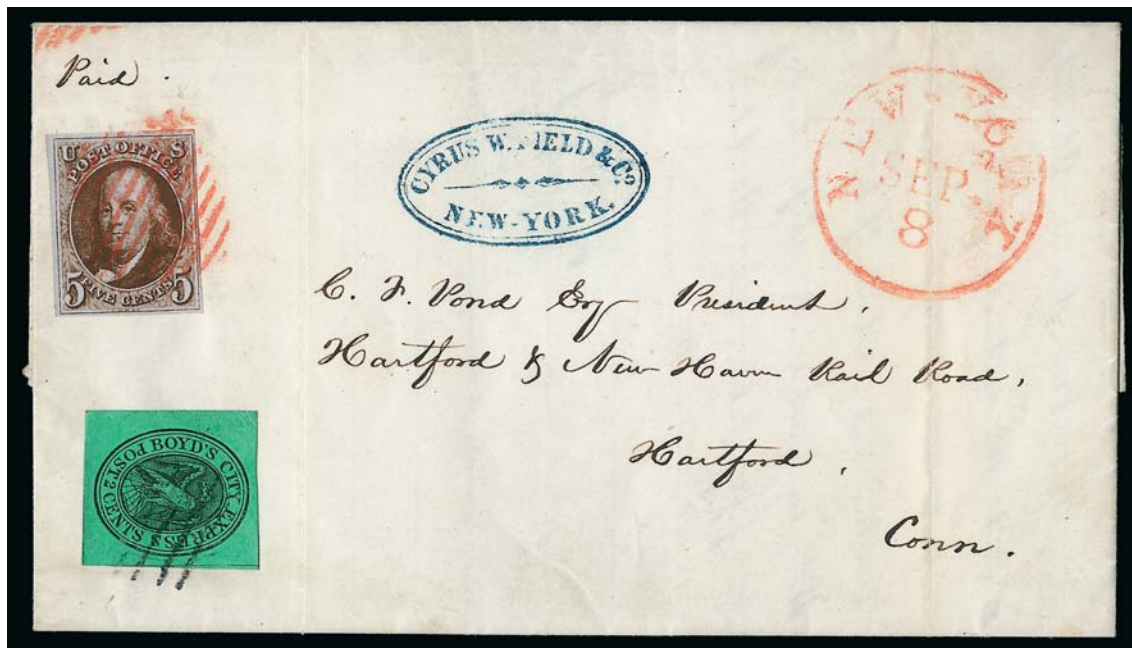 Paid.
U S
POST OFFICE
5 FIVE CENTS 5
CYRUS W. FIELD & Co.
NEW-YORK.
NEW-YORK
SEP.
8
C. F. Pond Esq President,
Hartford & New Haven Rail Road,
Hartford,
Conn.
BOYD'S CITY EXPRESS
POST 2 CENTS